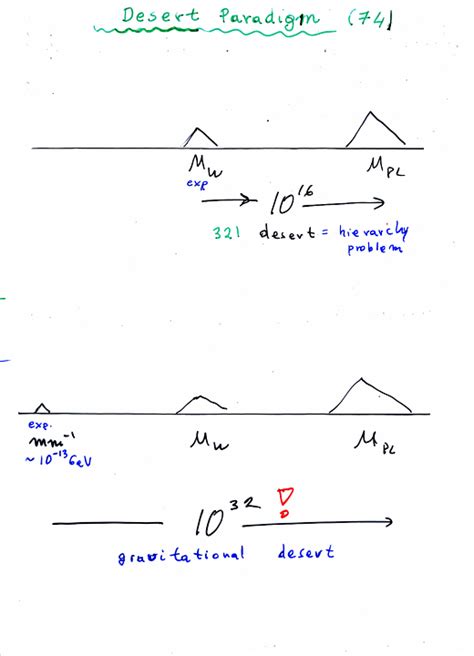 Desert Paradigm (74)
M_W M_PL
exp
10^16
321 desert = hierarchy
problem
exp.
mm^-1 M_W M_PL
~10^-13 GeV
10^32 !
gravitational desert